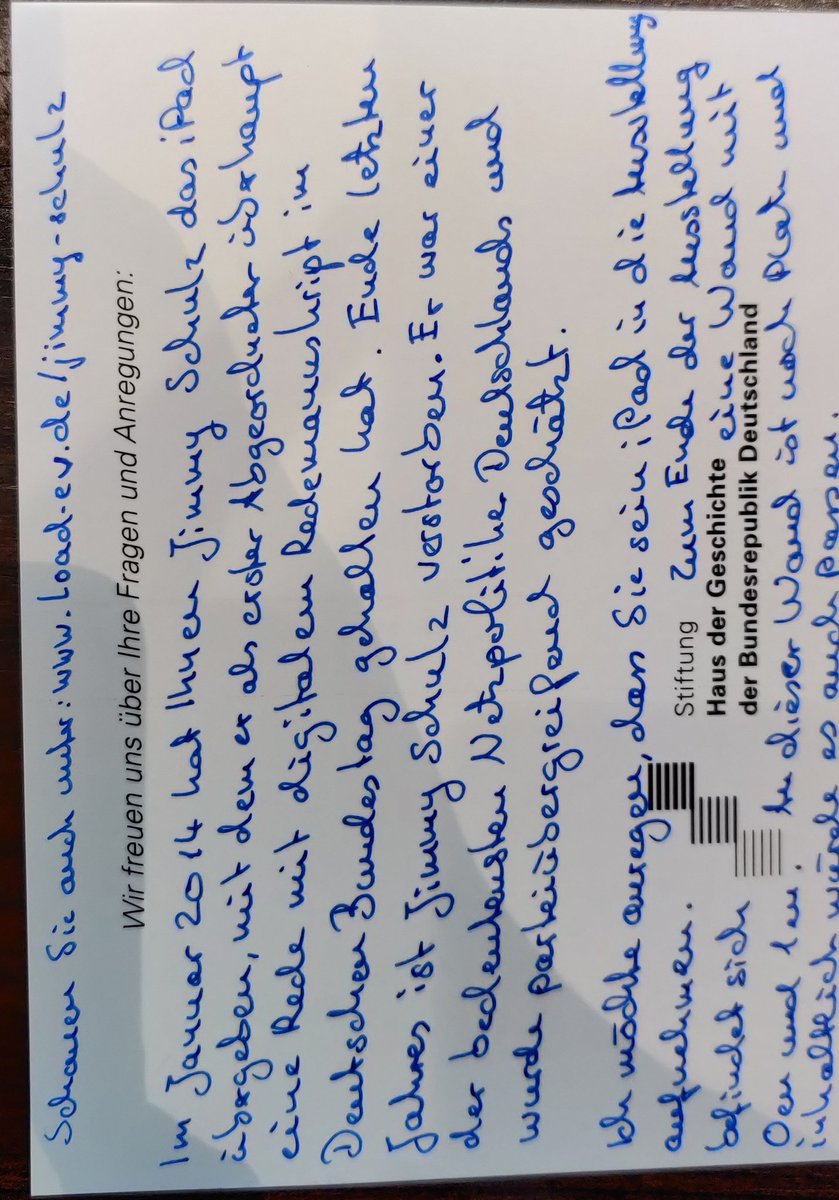 Schauen Sie auch unter: www.load-ev.de/jimmy-schulz
Wir freuen uns über Ihre Fragen und Anregungen:
Im Januar 2014 hat Ihnen Jimmy Schulz das iPad
übergeben, mit dem er als erster Abgeordneter überhaupt
eine Rede mit digitalem Redemanuskript im
Deutschen Bundestag gehalten hat. Ende letzten
Jahres ist Jimmy Schulz verstorben. Er war einer
der bedeutensten Netzpolitiker Deutschlands und
wurde parteiübergreifend geschätzt.
Ich möchte anregen, dass Sie sein iPad in die Ausstellung
aufnehmen. Zum Ende der Ausstellung
befindet sich eine Wand mit
0en und 1en. An dieser Wand ist noch Platz und
inhaltlich würde es auch passen.
Stiftung
Haus der Geschichte
der Bundesrepublik Deutschland